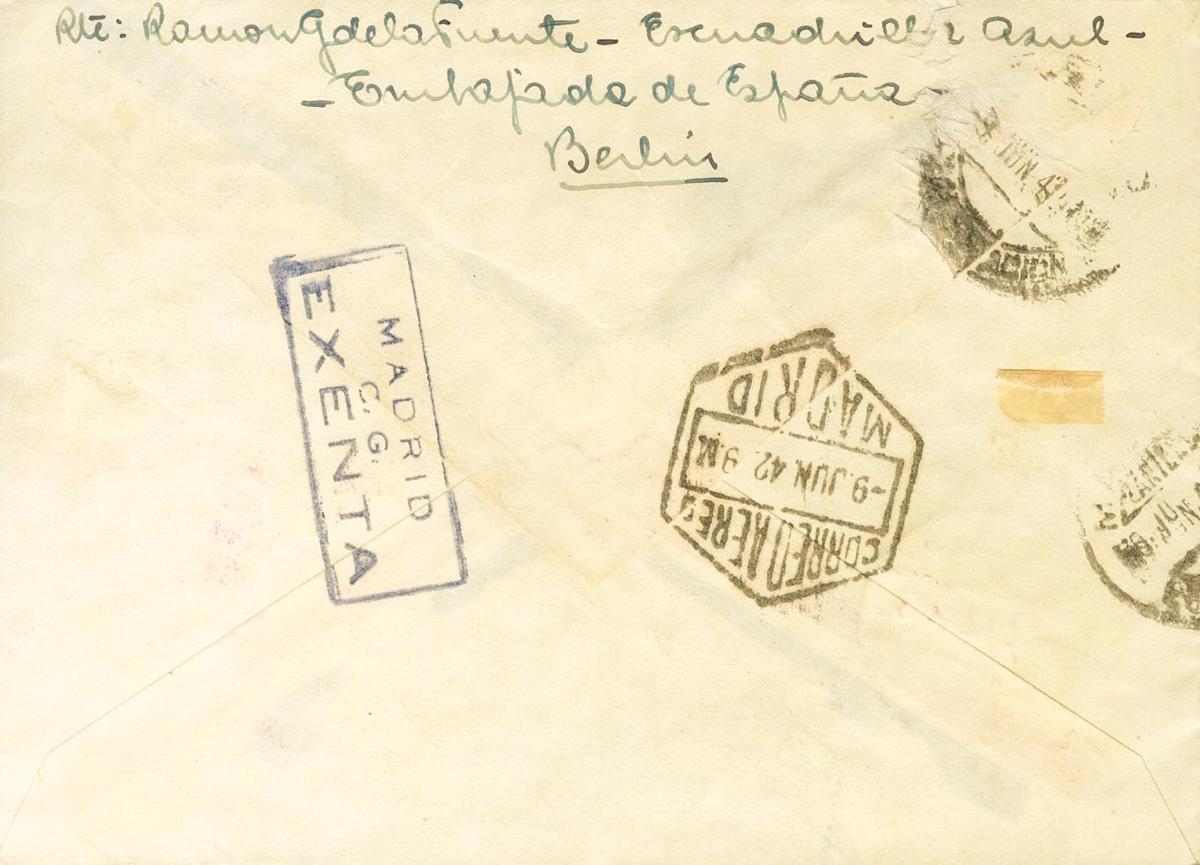 Rte: Ramon G de la Fuente - Escuadrilla Azul -
- Embajada de España -
Berlin
JUN 42
MADRID
C. G.
EXENTA
MADRID
-9. JUN 42. 9.M
CORREO AEREO